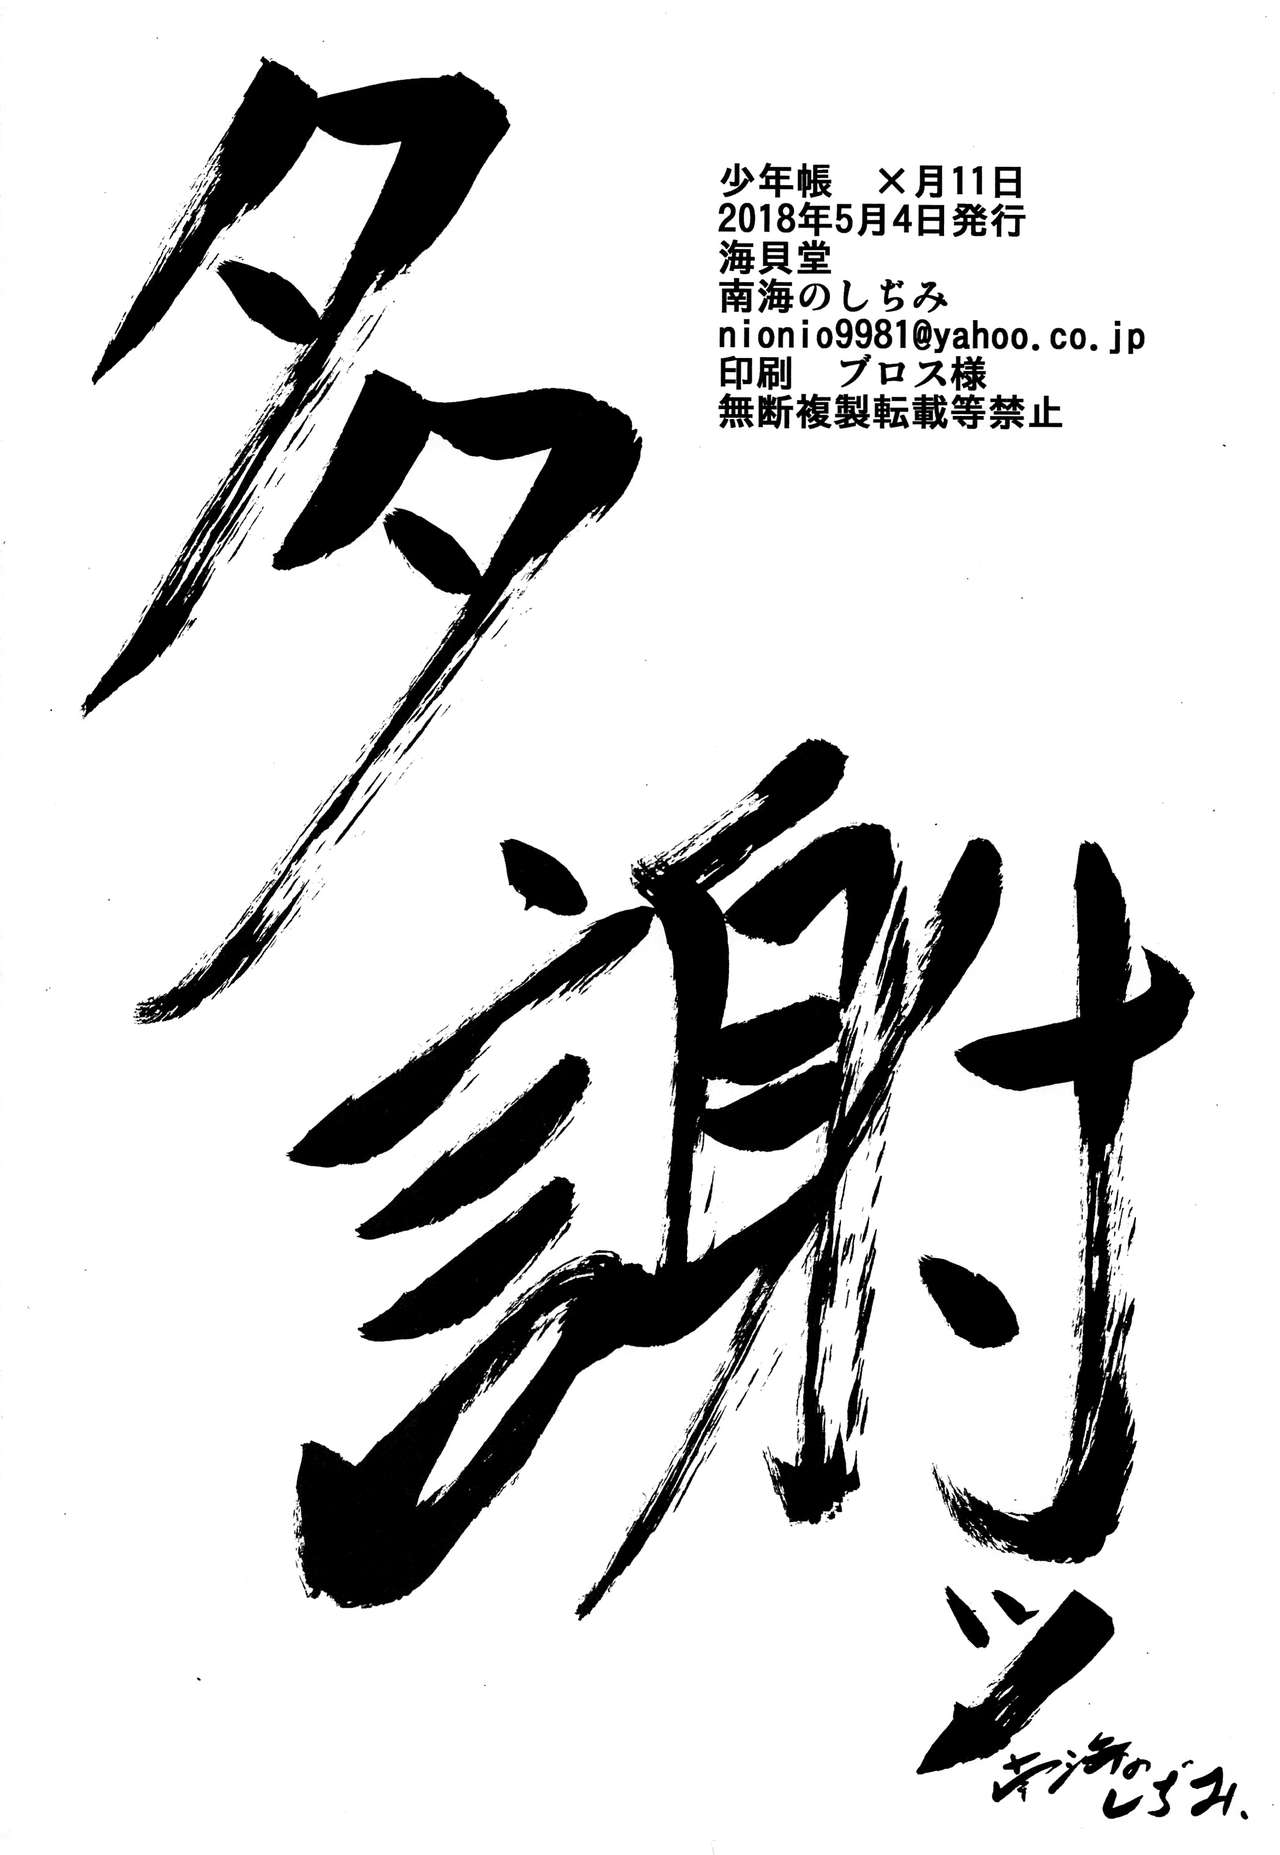 少年帳　×月11日
2018年5月4日発行
海貝堂
南海のしぢみ
nionio9981@yahoo.co.jp
印刷　ブロス様
無断複製転載等禁止
多謝ッ
南海の
しぢみ、